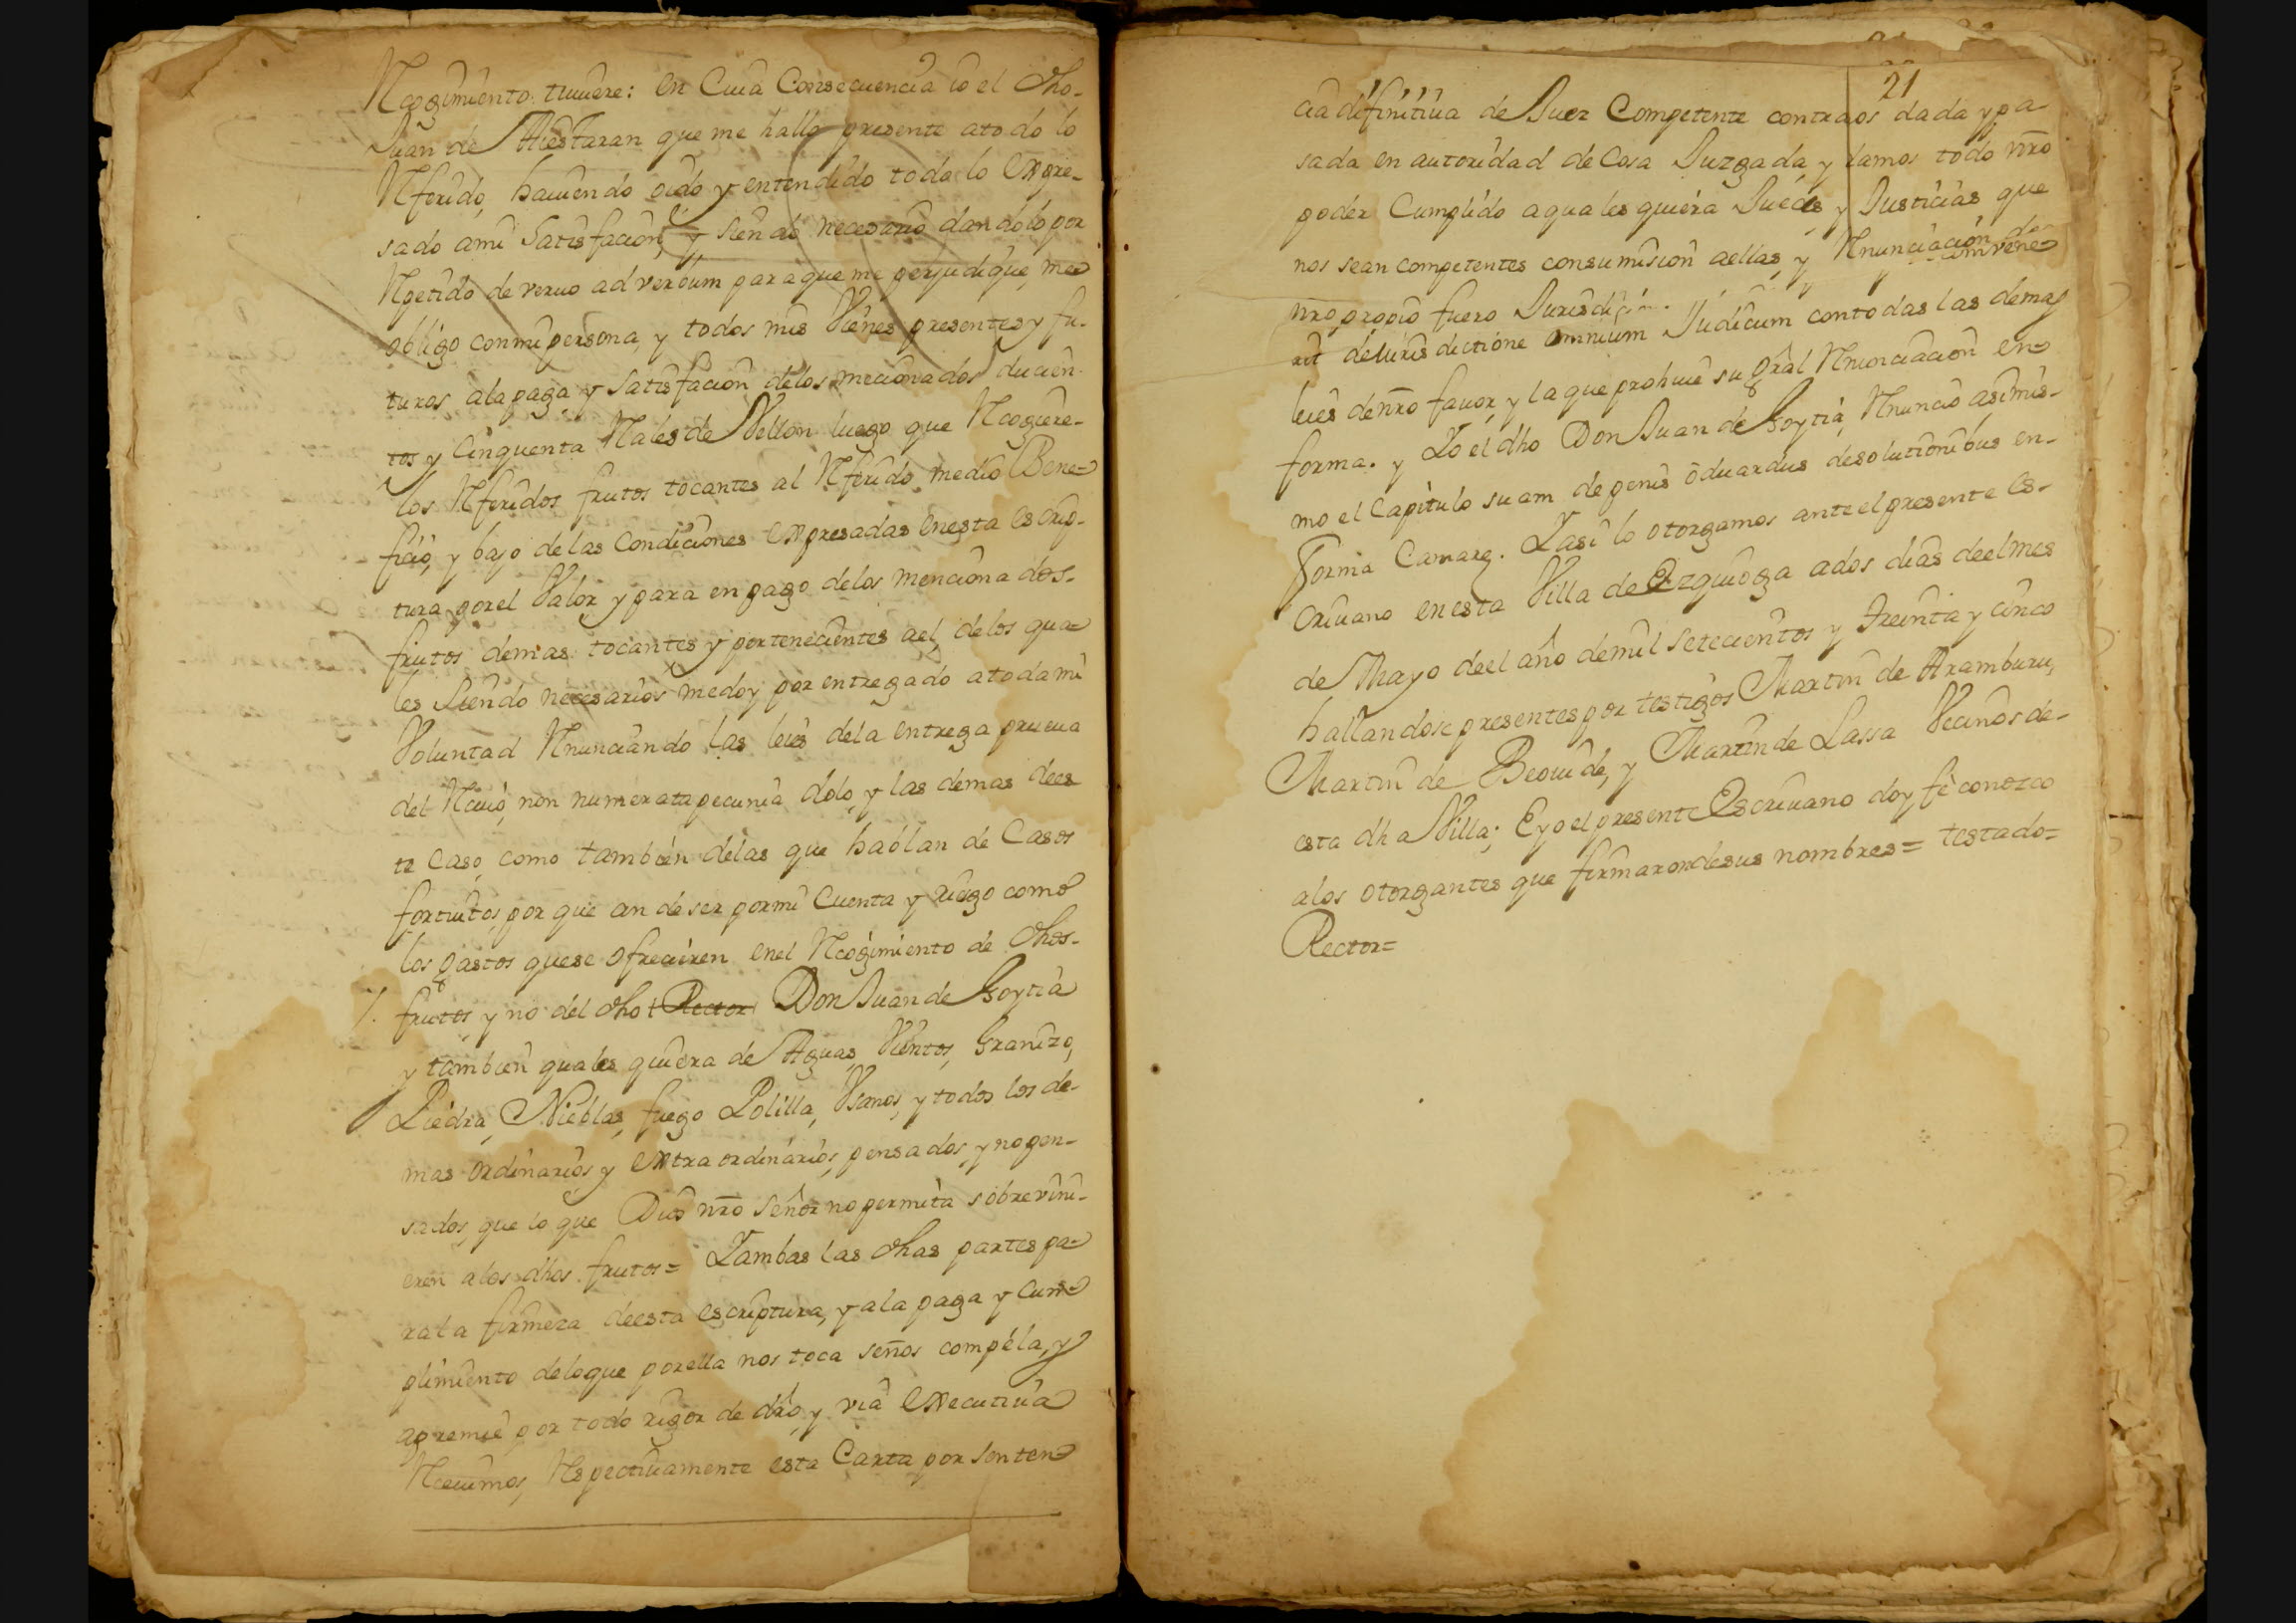 Recogimiento tuuiere: en Cuia Consecuencia io el dho
Juan de Aiestaran que me hallo presente atodo lo
Referido, hauiendo oido y entendido todo lo expre-
sado ami Satisfacion, y siendo necesario dandolo por
Repetido de veruo ad verbum paraque me perjudique, me
obligo conmi persona, y todos mis Vienes presentes y fu-
turos ala paga, y satisfacion delos mecionados ducien-
tos y Cinquenta Reales de Vellon luego que Recogiere
los Referidos frutos tocantes al Referido medio Bene-
ficio, y bajo delas Condiciones expresadas enesta escrip-
tura, por el Valor y para en pago delos menciona dos
frutos demas tocantes y pertenecientes ael, delos qua-
les siendo necesarios medoy por entregado atoda mi
Voluntad Renunciando las leies dela entrega prueua
del Reciuo, non numerata pecunia dolo, y las demas dees
te Caso, como tambien delas que hablan de Casos
fortuitos, por que an de ser por mi Cuenta y riesgo como
los gastos que se ofrecieren enel Recogimiento de dhos
frutos, y no del dho Rector Don Juan de Goytia
y tambien quales quiera de Aguas, Vientos, Granizo,
Piedra, Nieblas, fuego Polilla, Vsanos, y todos los de-
mas ordinarios y extra ordinarios, pensados, y no pen-
sados, que lo que Dios nro Señor no permita sobrevini-
eren alos dhos frutos= Yambas las dhas partes pa-
rala firmeza deesta escriptura, y ala paga y Cum-
plimiento deloque porella nos toca senos compela, y
apremie por todo rigor de dro, y via executiua
Receuimos, Respectiuamente esta Carta por senten-
21
cia difinitiua de Juez Competente contranos dada y pa-
sada en autoridad de Cosa Juzgada, y damos todo nro
poder Cumplido aquales quiera Jueces y Justicias que
nos sean competentes consumision aellas, y Renunciacion de
nro propio fuero Jurisdicion y conbene-
rit de iurisdictione omnium Judicum contodas las demas
leies denro fauor, y la que prohiue su gral Renunciacion en
forma. y Yo el dho Don Juan de Goytia, Renuncio asimis-
mo el Capitulo suam de penis oduardus desolutionibus en
forma Camare. Yasi lo otorgamos ante el presente es-
criuano en esta Villa de Ezquioga ados dias deelmes
de Mayo deel año demil setecientos y Treinta y cinco
hallandose presentes por testigos Martin de Aramburu,
Martin de Beouide, y Martin de Lassa Vecinos de
esta dha Villa; E yo el presente Escriuano doy fe conozco
alos otorgantes que firmaron desus nombres= testado=
Rector=